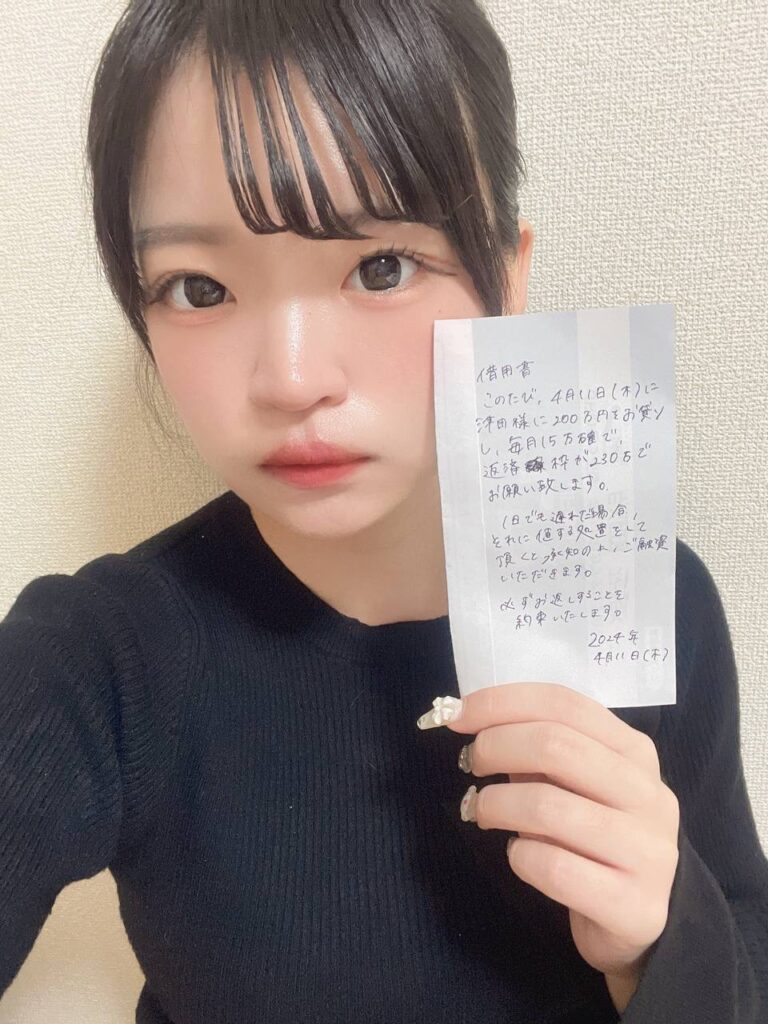 借用書
このたび、4月11日(木)に
津田様に200万円をお貸り
し、毎月15万確で、
返済 枠が230万で
お願い致します。
1日でも遅れた場合、
それに値する処置をして
頂くと承知の上、ご融資
いただきます。
必ずお返しすることを
約束いたします。
2024年
4月11日(木)